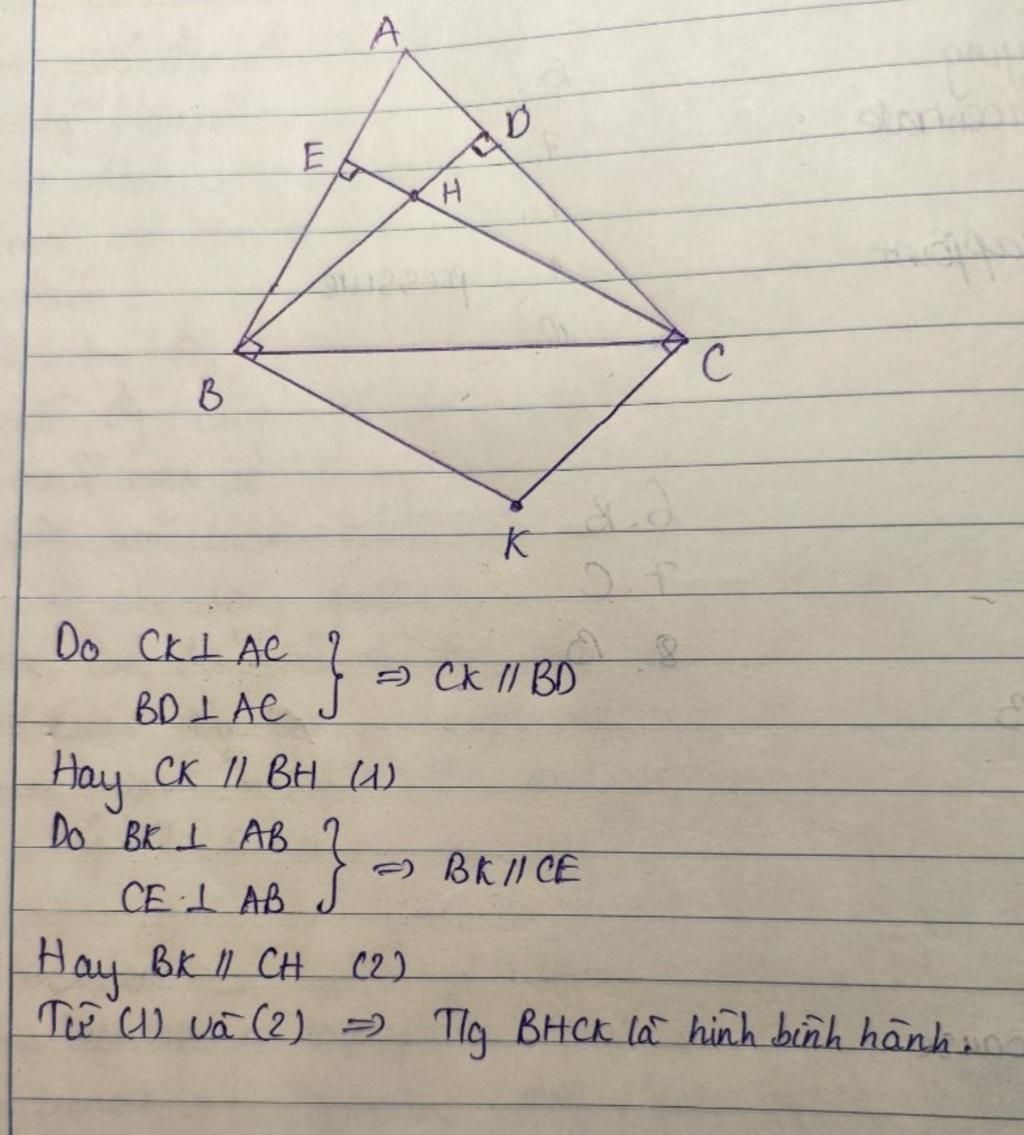 A
D
E
H
B
C
K
Do CK ⊥ AC
BD ⊥ AC } ⇒ CK // BD
Hay CK // BH (1)
Do BK ⊥ AB
CE ⊥ AB } ⇒ BK // CE
Hay BK // CH (2)
Từ (1) và (2) ⇒ T/g BHCK là hình bình hành.